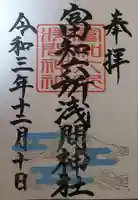 奉拝
富知六所浅間神社
令和三年十二月十日